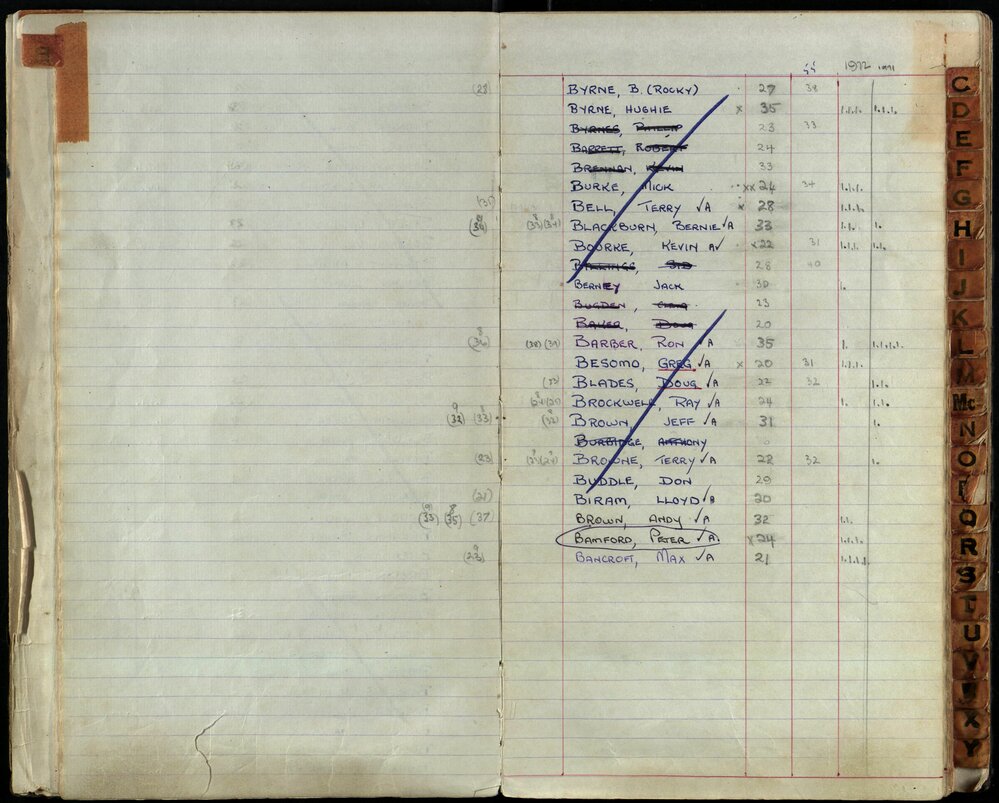 1972 1971
(28) BYRNE, B. (ROCKY) 27 38
BYRNE, HUGHIE x 35 1.1.1. 1.1.1.
BYRNES, PHILLIP 23 33
BARRETT, ROBERT 24
BRENNAN, KEVIN 33
BURKE, MICK xx24 34 1.1.1.
(31) BELL, TERRY √A x 28 1.1.1.
BLACKBURN, BERNIE √A 33 1.1. 1.
BOURKE, KEVIN A√ x22 31 1.1.1. 1.1.
28 40
BERNEY JACK 30 1.
BUGDEN, 23
BAKER, DOUG 20
BARBER, RON √A 35 1. 1.1.1.1.
BESOMO, GREG √A x 20 31 1.1.1.
BLADES, DOUG √A 22 32 1.1.
BROCKWELL, RAY √A 24 1. 1.1.
BROWN, JEFF √A 31 1.
BURBIDGE, ANTHONY
(23) BROWNE, TERRY √A 22 32 1.
BUDDLE, DON 29
(21) BIRAM, LLOYD √A 20
(33) (35) (37) BROWN, ANDY √A 32 1.1.
BAMFORD, PETER √A. x24 1.1.1.
(23) BANCROFT, MAX √A 21 1.1.1.1.
C
D
E
F
G
H
I
J
K
L
M
Mc
N
O
P
Q
R
S
T
U
V
W
X
Y